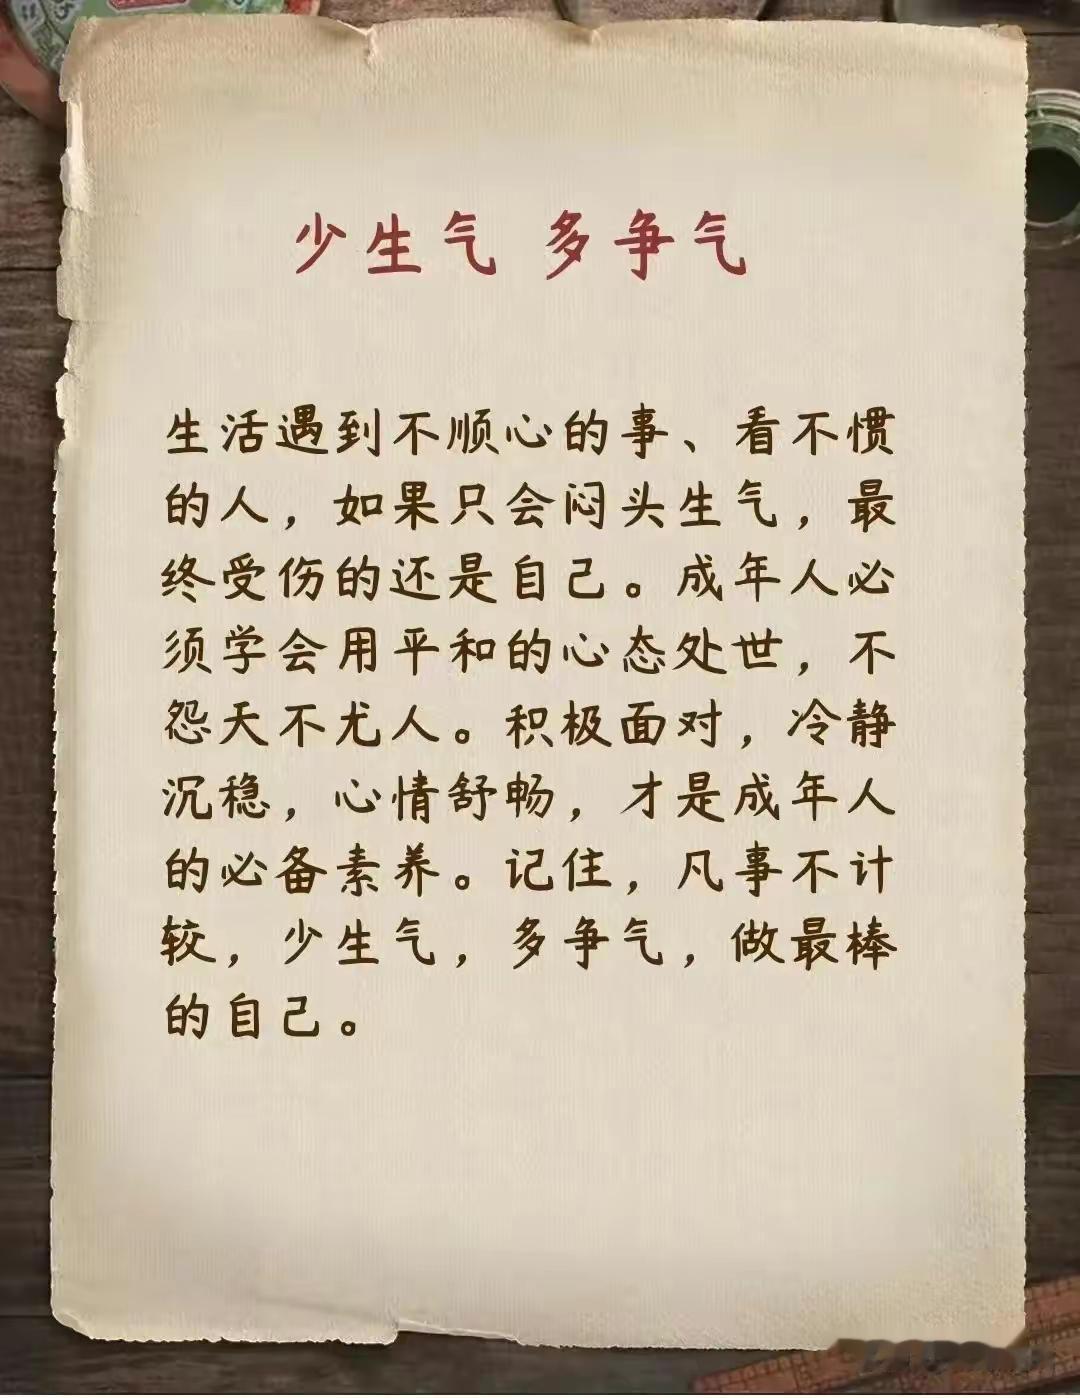 少生气 多争气
生活遇到不顺心的事、看不惯
的人，如果只会闷头生气，最
终受伤的还是自己。成年人必
须学会用平和的心态处世，不
怨天不尤人。积极面对，冷静
沉稳，心情舒畅，才是成年人
的必备素养。记住，凡事不计
较，少生气，多争气，做最棒
的自己。